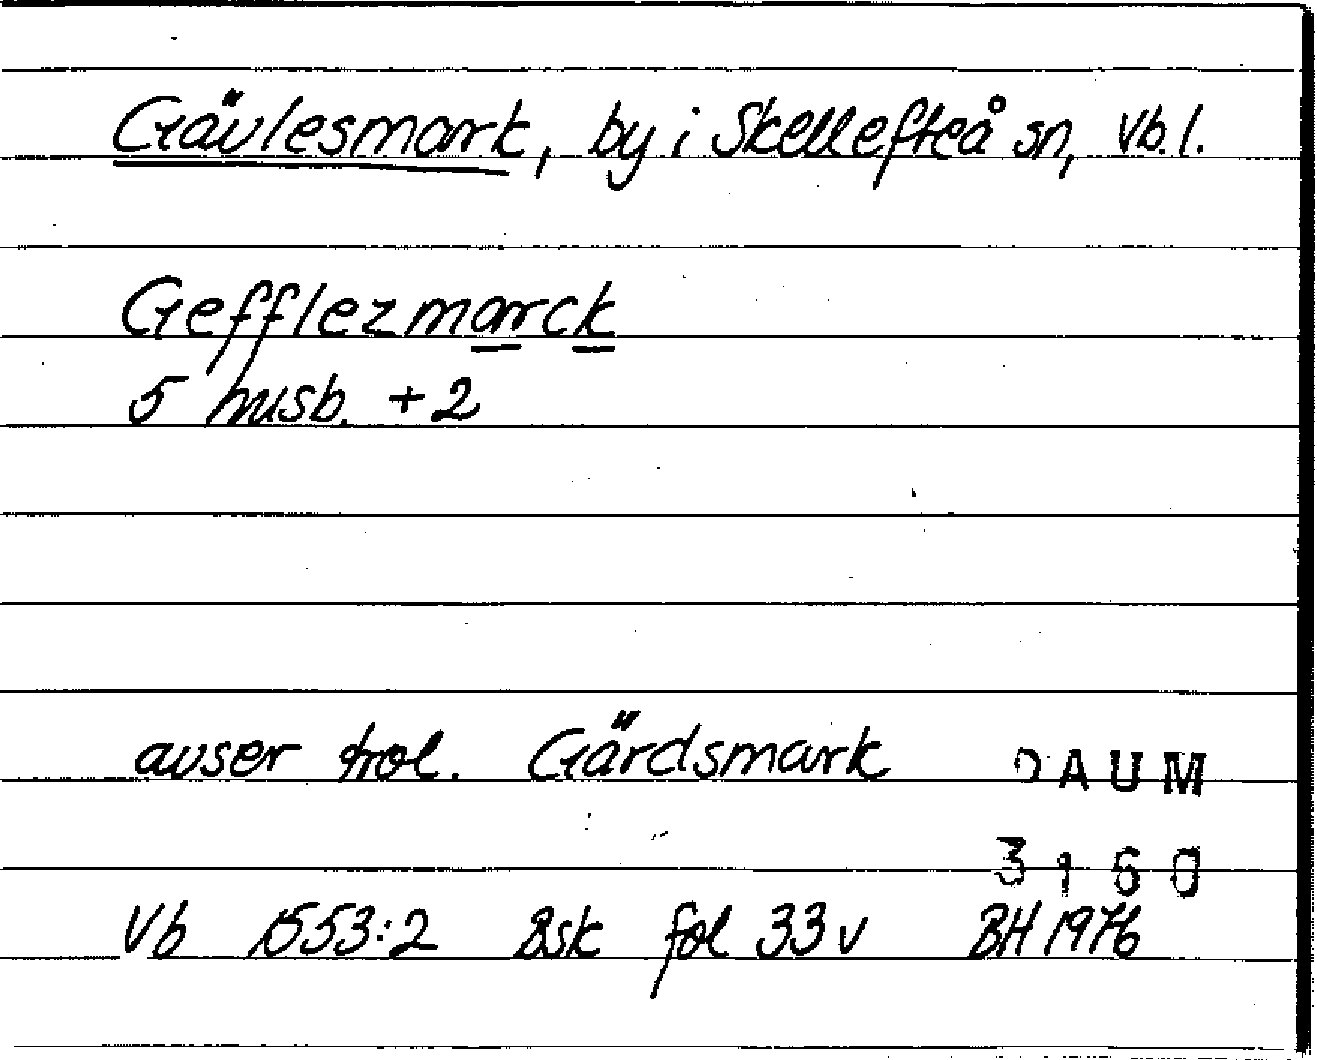 Gävlesmark, by i Skellefteå sn, Vb. l.
Gefflezmarck
5 husb. +2
avser trol. Gärdsmark
DAUM
3160
Vb 1553:2 Bsk fol 33 v BH 1976